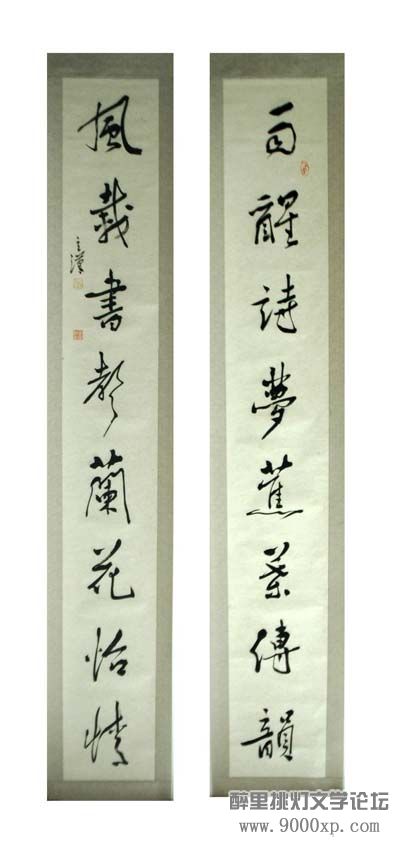 雨醒詩夢蕉葉傳韻
風載書聲蘭花怡情
醉里挑灯文学论坛
www.9000xp.com